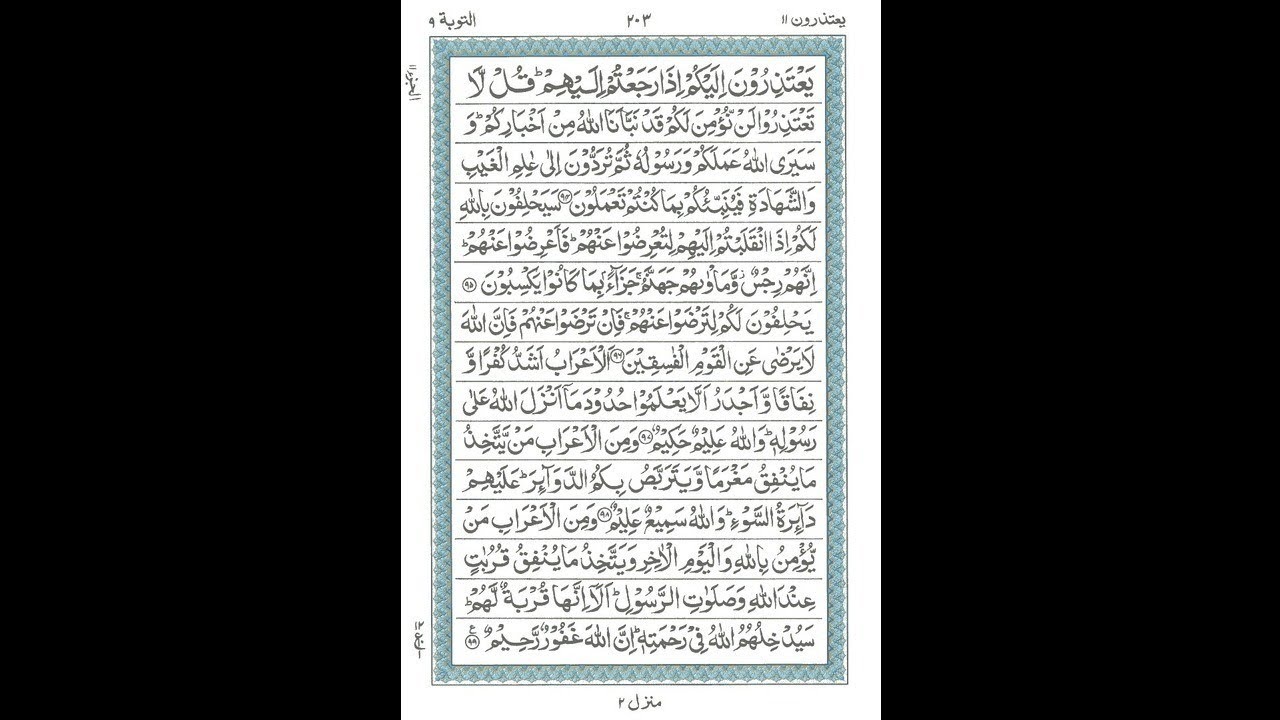 يعتذرون ١١
٢٠٣
التوبة ٩
الجزء ١١
يَعْتَذِرُوْنَ اِلَيْكُمْ اِذَا رَجَعْتُمْ اِلَيْهِمْ ؕ قُلْ لَّا
تَعْتَذِرُوْا لَنْ نُّؤْمِنَ لَكُمْ قَدْ نَبَّاَنَا اللّٰهُ مِنْ اَخْبَارِكُمْ ؕ وَ
سَيَرَى اللّٰهُ عَمَلَكُمْ وَرَسُوْلُهٗ ثُمَّ تُرَدُّوْنَ اِلٰى عٰلِمِ الْغَيْبِ
وَالشَّهَادَةِ فَيُنَبِّئُكُمْ بِمَا كُنْتُمْ تَعْمَلُوْنَ ۝٩٤ سَيَحْلِفُوْنَ بِاللّٰهِ
لَكُمْ اِذَا انْقَلَبْتُمْ اِلَيْهِمْ لِتُعْرِضُوْا عَنْهُمْ ؕ فَاَعْرِضُوْا عَنْهُمْ ؕ
اِنَّهُمْ رِجْسٌ ؗ وَّمَاْوٰىهُمْ جَهَنَّمُ ۚ جَزَآءًۢ بِمَا كَانُوْا يَكْسِبُوْنَ ۝٩٥
يَحْلِفُوْنَ لَكُمْ لِتَرْضَوْا عَنْهُمْ ۚ فَاِنْ تَرْضَوْا عَنْهُمْ فَاِنَّ اللّٰهَ
لَا يَرْضٰى عَنِ الْقَوْمِ الْفٰسِقِيْنَ ۝٩٦ اَلْاَعْرَابُ اَشَدُّ كُفْرًا وَّ
نِفَاقًا وَّاَجْدَرُ اَلَّا يَعْلَمُوْا حُدُوْدَ مَاۤ اَنْزَلَ اللّٰهُ عَلٰى
رَسُوْلِهٖ ؕ وَاللّٰهُ عَلِيْمٌ حَكِيْمٌ ۝٩٧ وَمِنَ الْاَعْرَابِ مَنْ يَّتَّخِذُ
مَا يُنْفِقُ مَغْرَمًا وَّيَتَرَبَّصُ بِكُمُ الدَّوَآئِرَ ؕ عَلَيْهِمْ
دَآئِرَةُ السَّوْءِ ؕ وَاللّٰهُ سَمِيْعٌ عَلِيْمٌ ۝٩٨ وَمِنَ الْاَعْرَابِ مَنْ
يُّؤْمِنُ بِاللّٰهِ وَالْيَوْمِ الْاٰخِرِ وَيَتَّخِذُ مَا يُنْفِقُ قُرُبٰتٍ
عِنْدَ اللّٰهِ وَصَلَوٰتِ الرَّسُوْلِ ؕ اَلَاۤ اِنَّهَا قُرْبَةٌ لَّهُمْ ؕ
سَيُدْخِلُهُمُ اللّٰهُ فِيْ رَحْمَتِهٖ ؕ اِنَّ اللّٰهَ غَفُوْرٌ رَّحِيْمٌ ۝٩٩ ع
منزل ٢